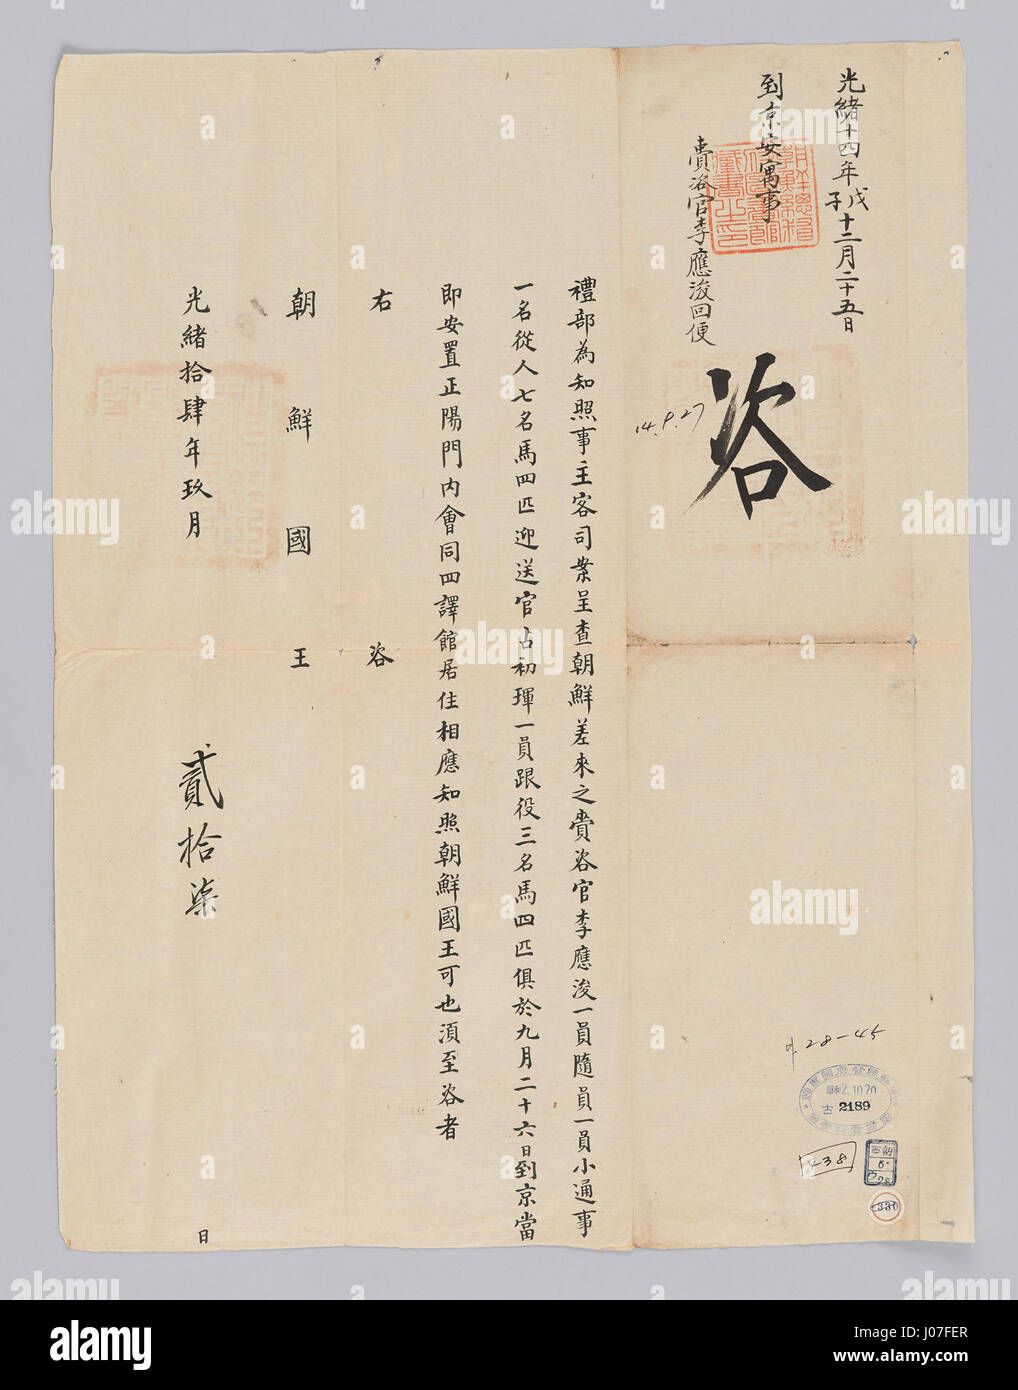 光緒十四年戊子十二月二十五日
到京安寓事
賷咨官李應浚回便
咨
14.9.27
禮部為知照事主客司案呈查朝鮮差來之賷咨官李應浚一員隨員一員小通事
一名從人七名馬四匹迎送官占初琿一員跟役三名馬四匹俱於九月二十六日到京當
即安置正陽門內會同四譯館居住相應知照朝鮮國王可也須至咨者
右 咨
朝鮮國王
光緒拾肆年玖月 貳拾柒 日
28-45
2.10.20
古 2189
438
330
alamy
www.alamy.com
Image ID: J07FER